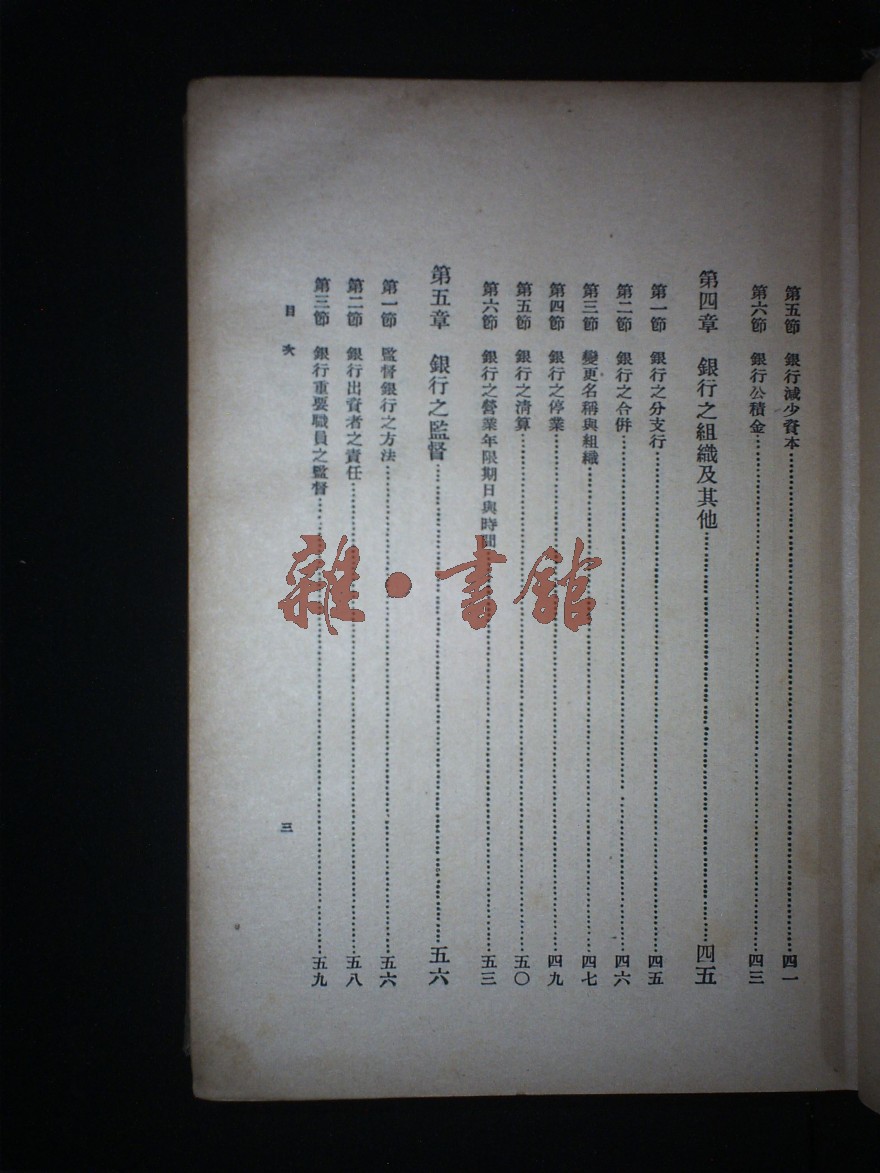 第五節　銀行減少資本……四一
第六節　銀行公積金……四三
第四章　銀行之組織及其他……四五
第一節　銀行之分支行……四五
第二節　銀行之合併……四六
第三節　變更名稱與組織……四七
第四節　銀行之停業……四九
第五節　銀行之清算……五〇
第六節　銀行之營業年限期日與時間……五三
第五章　銀行之監督……五六
第一節　監督銀行之方法……五六
第二節　銀行出資者之責任……五八
第三節　銀行重要職員之監督……五九
目次
三
雜·書館